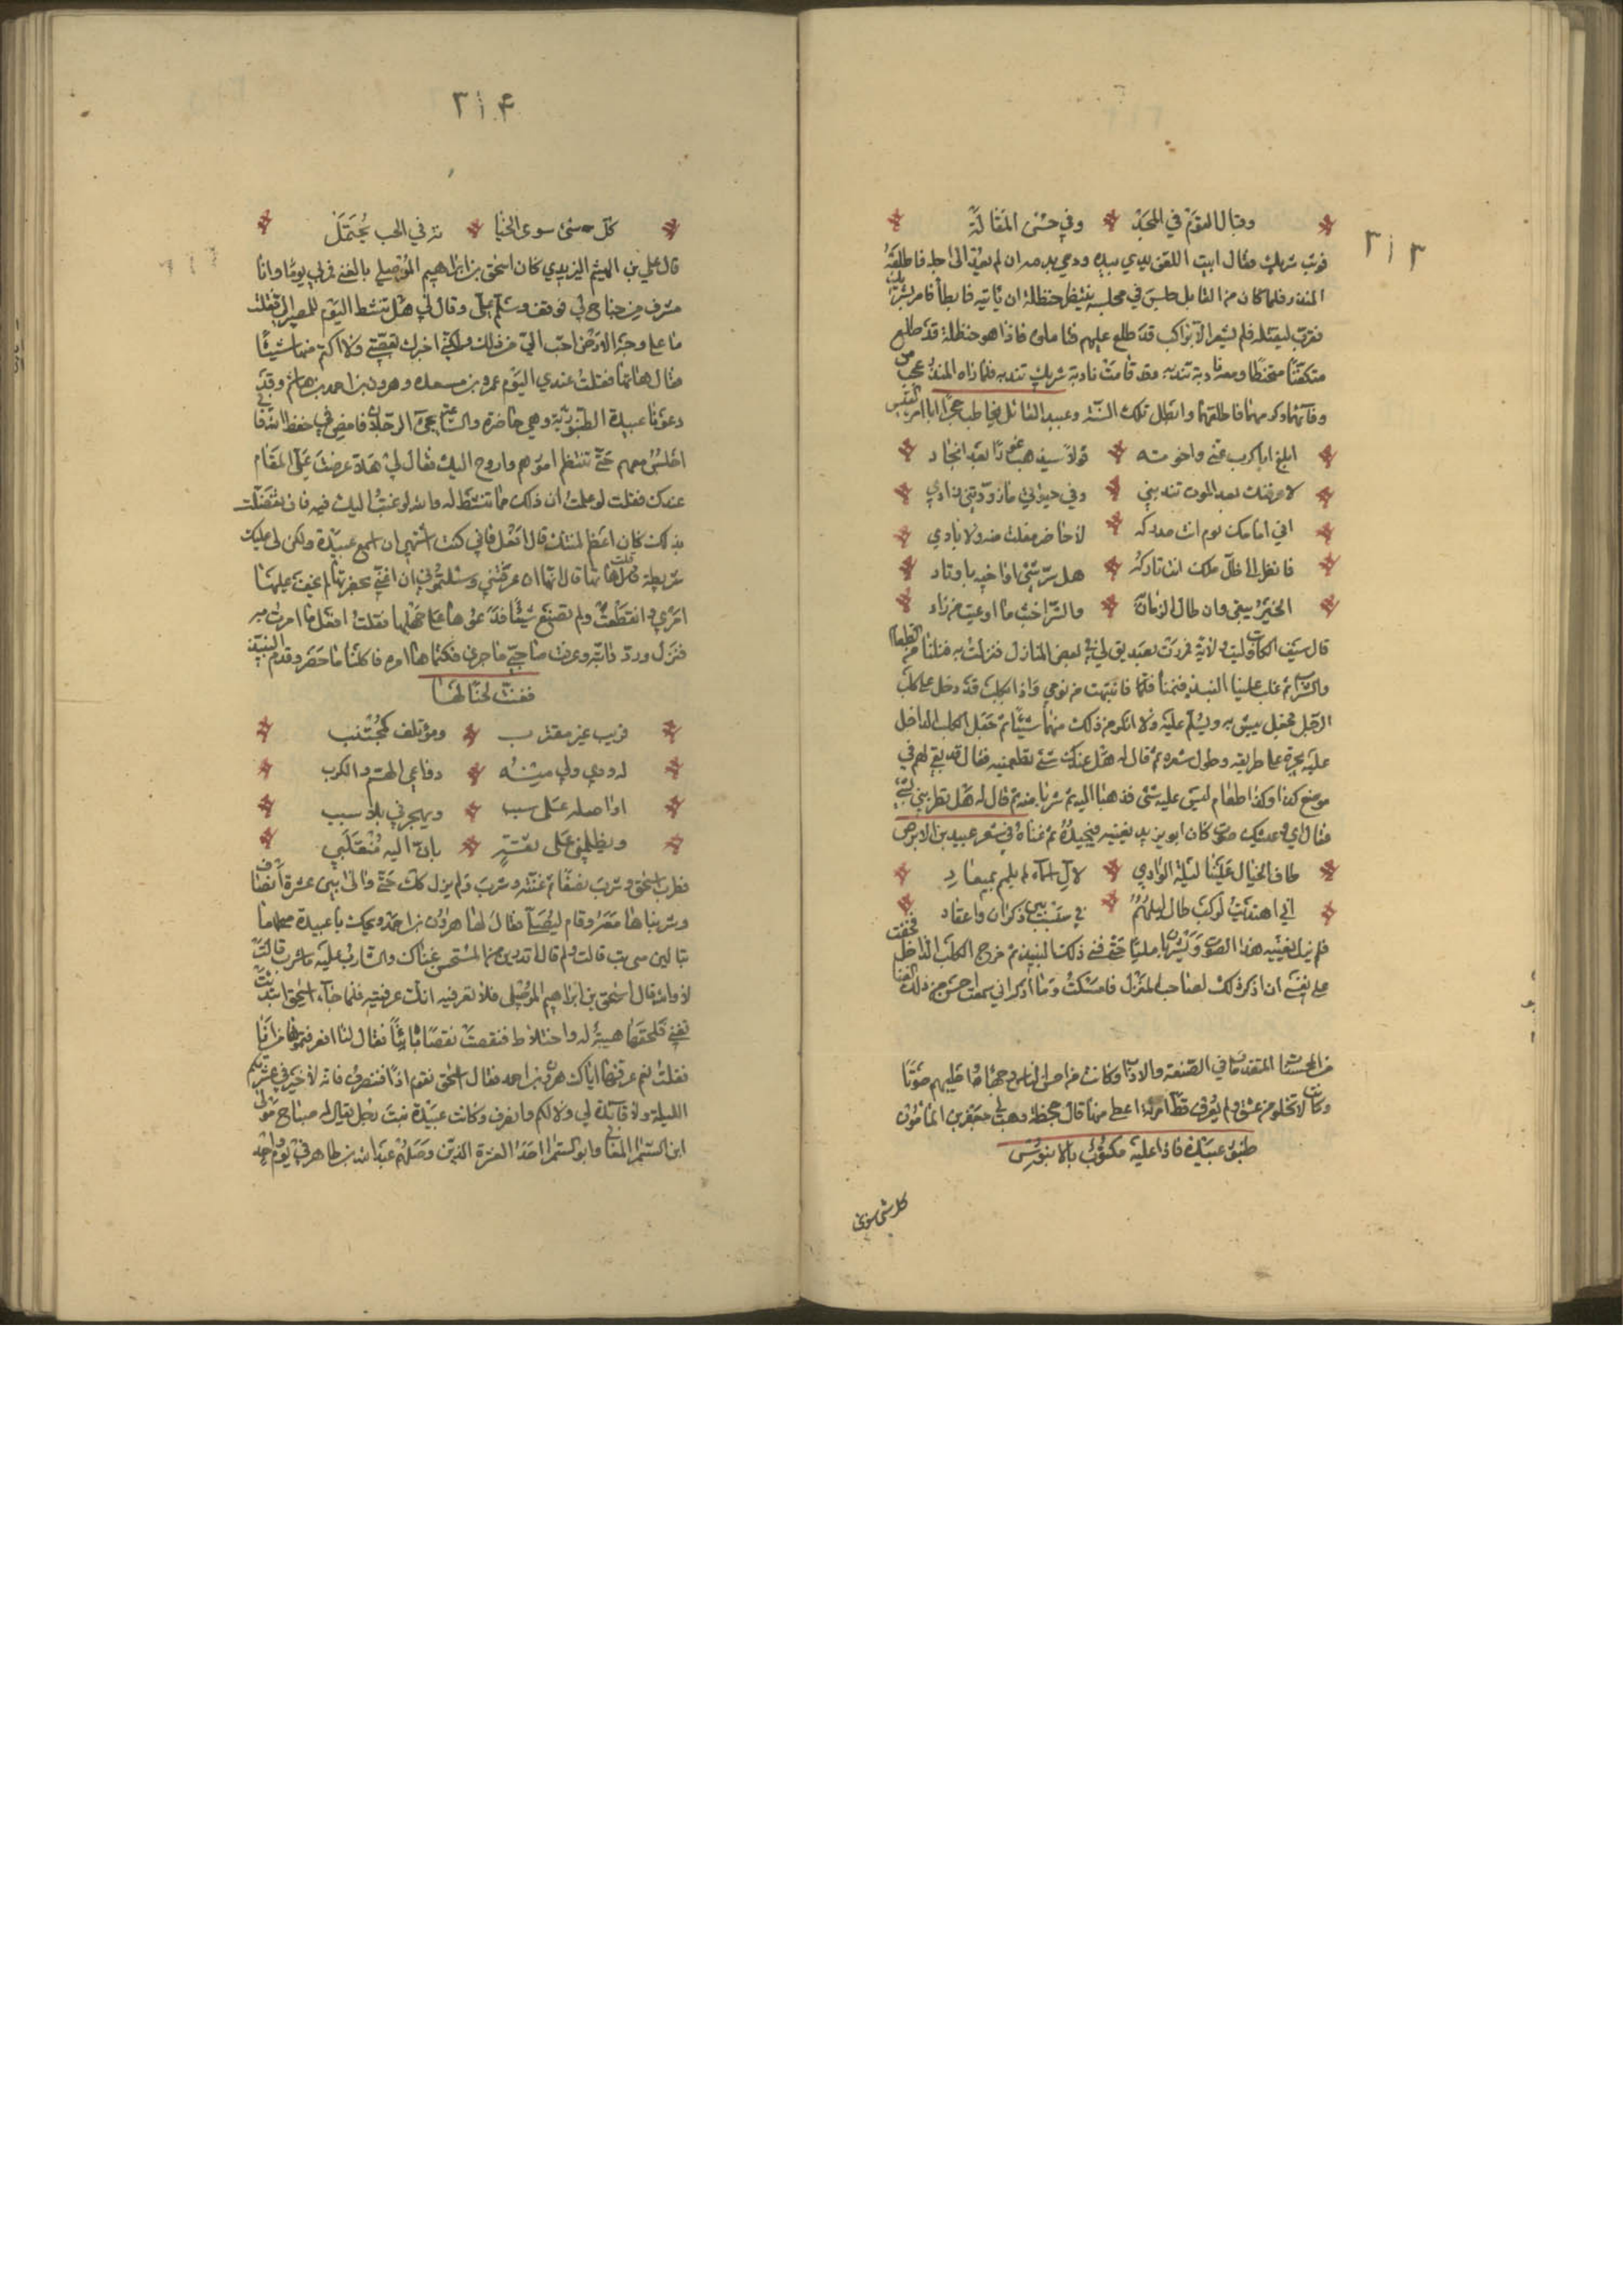 ٢١٣
وقبال القوم في المجد وفي حسن المقالة
فوثب شريك وقال ابيت اللعن يدي بيده ودمي بدمه ان لم يعد الى اجله فاطلقه
المنذر فلما كان من القابل جلس في مجلسه ينتظر حنظلة ان ياتيه فابطأ فامر بشريك
فقرب ليقتله فلم يشعر الا براكب قد طلع عليهم فتاملوه فاذا هو حنظلة قد طلع
متكفنا متحنطا ومعه نادبة تندبه وقد قامت نادبة شريك تندبه فلما راه المنذر عجب من
وفائهما وكرمهما فاطلقهما وابطل تلك السنة وعبيد القائل يخاطب حجرا ابا امرئ القيس
ابلغ ابا كرب عني واخوته قولا سيذهب غورا بعد انجاد
لا اعرفنك بعد الموت تندبني وفي حيوتي ما زودتني زادي
ان امامك يوم انت مدركه لا حاضر مفلت منه ولا بادي
فانظر الى ظل ملك انت تاركه هل ترسي اواخيه باوتاد
الخير يبقى وان طال الزمان به والشر اخبث ما اوعيت من زاد
قال سيف الكاتب وليت ولاية فمررت بصديق لي في بعض المنازل فنزلت به فنلنا من الطعام
والشراب ثم غلب علينا النبيذ فنمنا فانتبهت من نومي فاذا بكلب قد دخل على كلب
الرجل فجعل يبش به ويسلم عليه ولا انكر من ذلك منهما شيئا ثم جعل الكلب الداخل
عليه يخبره على طريقه وطول سفره ثم قال له هل عندك شي تطعمنيه فقال قد بقي لهم في
موضع كذا وكذا طعام ليس عليه شي فذهبا اليه ثم شربا منه ثم قال له هل تطربني بشي
فقال اي وعيشك صوت كان ابو يزيد يغنيه فيجيده ثم غناه في شعر عبيد بن الابرص
طاف الخيال علينا ليلة الوادي لآل اسماء لم يلمم بميعاد
اني اهتديت لركب طال ليلهم في سبسب بين دكداك واعقاد
فلم يزل يغنيه هذا الصوت ويشربان مليا حتى فني ذلك النبيذ ثم خرج الكلب الداخل فخفت
على نفسي ان اذكر ذلك لصاحب المنزل فامسكت وما اذكر اني سمعت احسن من ذلك الغنا
من المحسنات المتقدمات في الصنعة والادب وكانت من احسن الناس وجها واطيبهم صوتا
وكانت لا تخلو من عشق ولم يعرف قط امراة اعظم منها قال جحظة وهب لي جعفر بن المامون
طنبور عبيدة فاذا عليه مكتوب بالابنوس
كل شي سوى
٢١٤
كل شي سوى الخيا نة في الحب يحتمل
قال علي بن الهيثم اليزيدي كان اسحق بن ابراهيم الموصلي يالفني فمر بي يوما وانا
مشرف من جناح لي فوقف وسلم علي وقال لي هل تنشط اليوم للمصير الي فقلت
ما على وجه الارض احب الي من ذلك ولكني اخبرك بقصتي ولا اكتمك منها شيئا
فقال هاتها فقلت عندي اليوم عمرو بن مسعدة وهرون بن احمد بن هشام وقد
دعونا عبيدة الطنبورية وهي حاضرة والساعة يجي الرجلان فامض في حفظ الله فاني
اجلس معهم حتى تنتظم امورهم واروح اليك فقال لي هلا عرضت علي المقام
عندك فقلت لو علمت ان ذلك مما تنشط له والله لرغبت اليك فيه فان تفضلت
بذلك كان اعظم لمنتك قال افعل فاني كنت اشتهي ان اسمع عبيدة ولكن لي عليك
شريطة قلت هاتها قال انها ان عرفتني وسئلتموني ان اغني بحضرتها لم يخف عليها
امري وانقطعت ولم تصنع شيئا فدعوها على جهلها فقلت افعل ما امرت به
فنزل ورد دابته وعرفت صاحبي ما جرى فكتماها امره فاكلنا ما حضر وقدم النبيذ
فغنت لحنا لها
قريب غير مقترب ومؤتلف كمجتنب
له ودي ولي منه دواعي الهم والكرب
اواصله على سبب ويهجرني بلا سبب
ويظلمني على ثقة بان اليه منقلبي
فطرب اسحق وشرب نصفا ثم غنت وشرب ولم يزل كذلك حتى والى بين عشرة انصاف
وشربناها معه وقام ليصلي فقال لها هرون بن احمد ويحك يا عبيدة ما
تبالين متى مت قالت ولم قال اتدرين من المستحسن غناك والشارب عليه ما شرب قالت
لا والله قال اسحق بن ابراهيم الموصلي فلا تعرفيه انك عرفتيه فلما جاء اسحق ابتدأت
تغني فلحقها هيبة له واختلاط فنقصت نقصا بينا فقال لنا اعرفتموها من انا
فقلت نعم عرفها اياك هرون بن احمد فقال اسحق نقوم اذا فننصرف فانه لا خير في عشرتكم
الليلة ولا فائدة لي ولا لكم وانصرف وكانت عبيدة بنت رجل يقال له صباح مولى
ابي السمراء الغساني وابو السمرا احد العدة الذين وصلهم عبد الله بن طاهر في يوم واحد